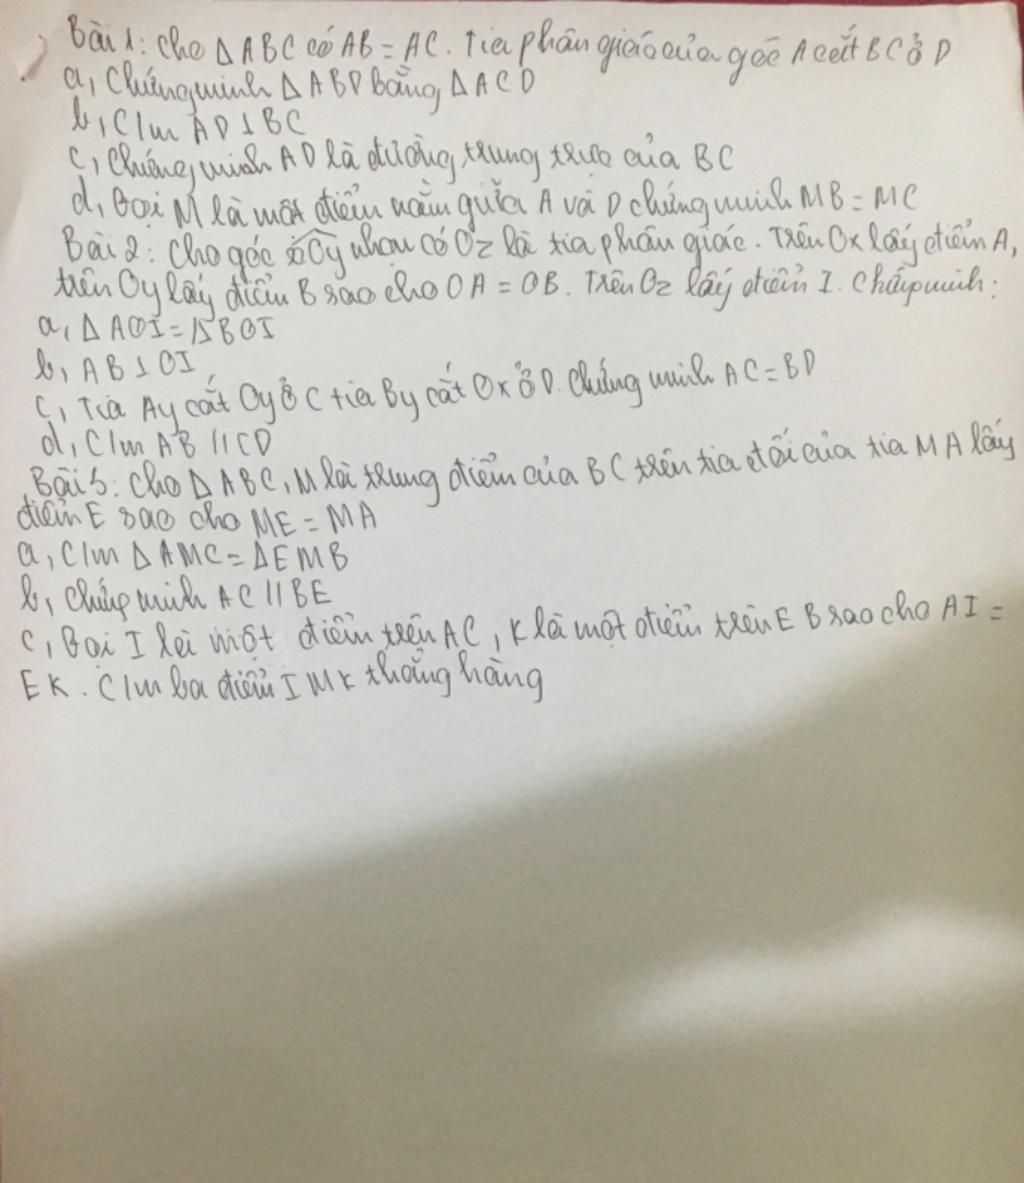 Bài 1: Cho Δ ABC có AB = AC. Tia phân giác của góc A cắt BC ở D
a, Chứng minh Δ ABD bằng Δ ACD
b, C/m AD ⊥ BC
c, Chứng minh AD là đường trung trực của BC
d, Gọi M là một điểm nằm giữa A và D chứng minh MB = MC
Bài 2: Cho góc xOy nhọn có Oz là tia phân giác. Trên Ox lấy điểm A,
trên Oy lấy điểm B sao cho OA = OB. Trên Oz lấy điểm I. Chứng minh:
a, Δ AOI = Δ BOI
b, AB ⊥ OI
c, Tia Ay cắt Oy ở C tia By cắt Ox ở D. Chứng minh AC = BD
d, C/m AB // CD
Bài 5: Cho Δ ABC, M là trung điểm của BC trên tia đối của tia MA lấy
điểm E sao cho ME = MA
a, C/m Δ AMC = Δ EMB
b, Chứng minh AC // BE
c, Gọi I là một điểm trên AC, K là một điểm trên EB sao cho AI =
EK. C/m ba điểm I M K thẳng hàng